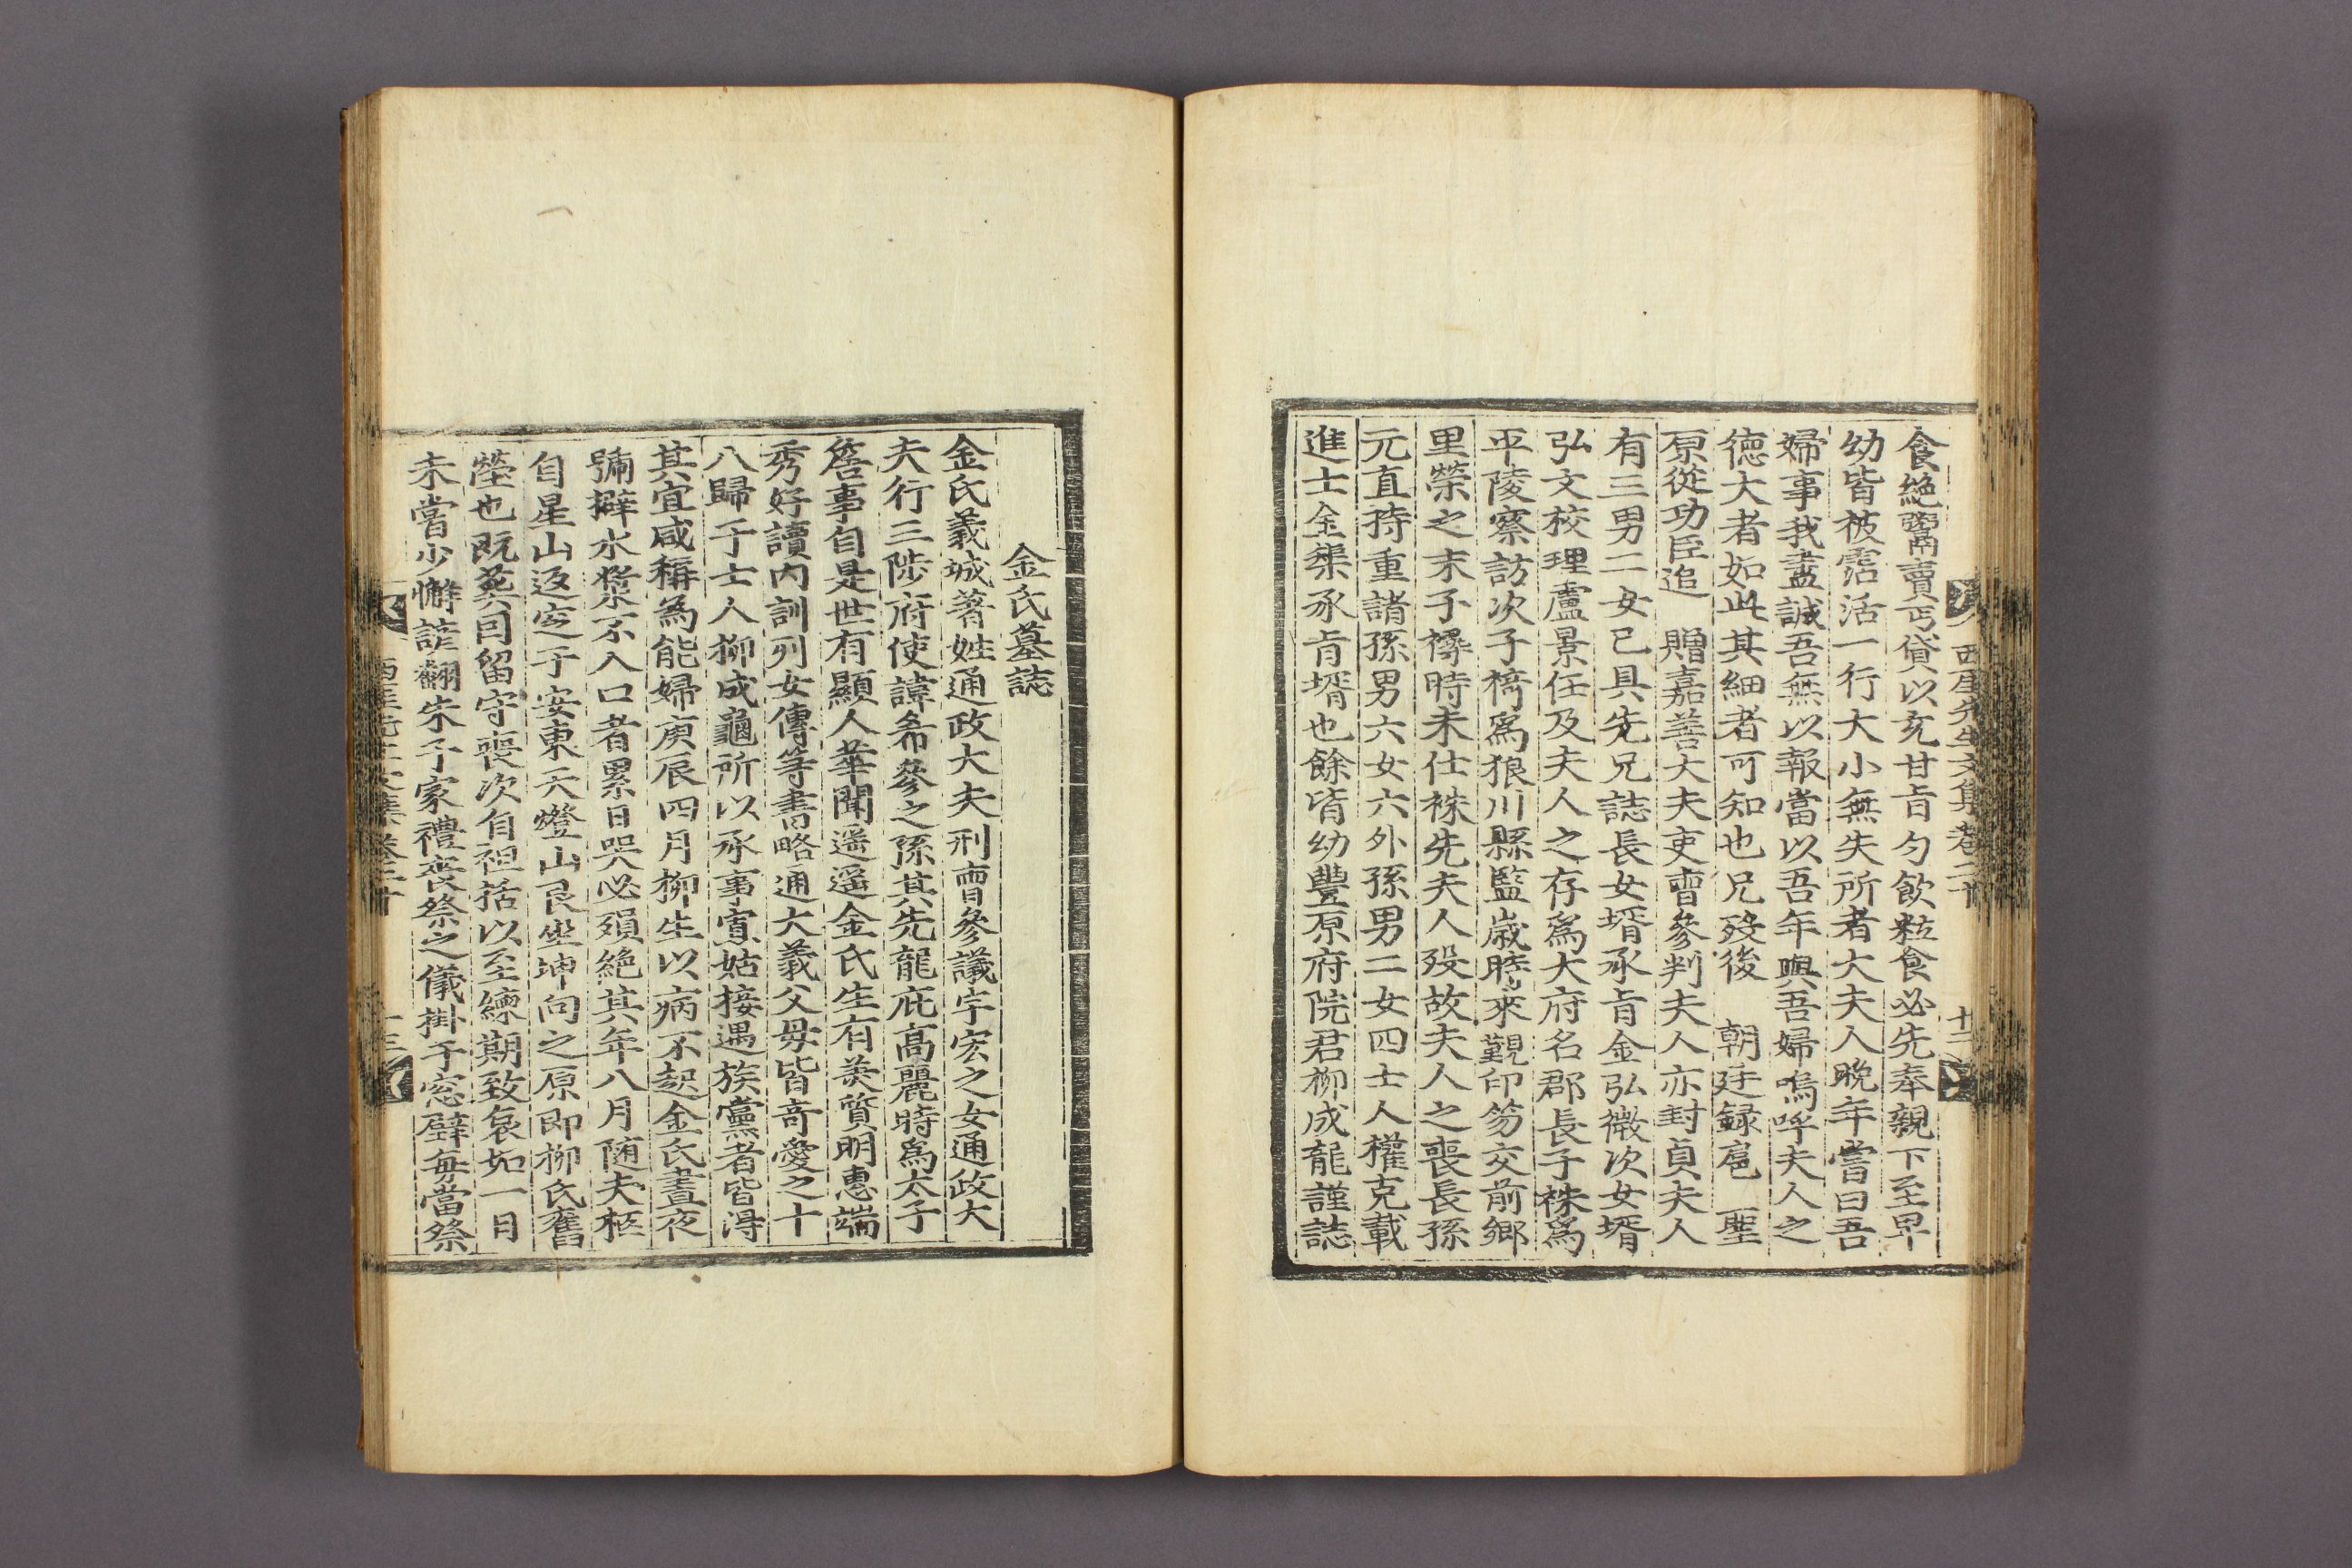 西厓先生文集卷二十
食絶鬻賣丐貸以充甘旨勺飮粒食必先奉親下至卑
幼皆被霑活一行大小無失所者大夫人晩年嘗曰吾
婦事我盡誠吾無以報當以吾年與吾婦嗚呼夫人之
德大者如此其細者可知也兄歿後 朝廷録扈 聖
原從功臣追 贈嘉善大夫吏曹參判夫人亦封貞夫人
有三男二女已具先兄誌長女壻承旨金弘微次女壻
弘文校理盧景任及夫人之存爲大府名郡長子袾爲
平陵察訪次子䄎爲狼川縣監歲時來覲印笏交前鄕
里榮之末子襑時未仕袾先夫人歿故夫人之喪長孫
元直持重諸孫男六女六外孫男二女四士人權克載
進士金䊫承旨壻也餘皆幼豐原府院君柳成龍謹誌
金氏墓誌
金氏義城著姓通政大夫刑曹參議宇宏之女通政大
夫行三陟府使諱希參之孫其先龍庇高麗時爲太子
詹事自是世有顯人華聞遥遥金氏生有美質明惠端
秀好讀内訓列女傳等書略通大義父毋皆奇愛之十
八歸于士人柳成龜所以承事寡姑接遇族黨者皆得
其宜咸稱爲能婦庚辰四月柳生以病不起金氏晝夜
號擗水漿不入口者累日哭必殞絶其年八月随夫柩
自星山返窆于安東天燈山艮坐坤向之原即柳氏舊
塋也既葬因留守喪次自袒括以至練期致哀如一日
未嘗少懈諺翻朱子家禮喪祭之儀掛于窓壁每當祭